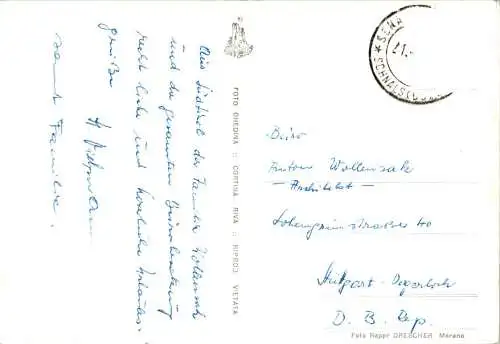 Aus Südtirol der Familie Wollensak
und der gesamten Bürobesatzung
recht liebe und herzliche Urlaubs-
grüße
samt Familie.
FOTO GHEDINA :: CORTINA RIVA :: RIPROD. VIETATA
SENA
* SCHNALS
21.
Büro
Anton Wollensak
– Architekt –
Lohengrinstrasse 40
Stuttgart-Degerloch
D. B. Rep.
Foto Rappr DRESCHER Merano